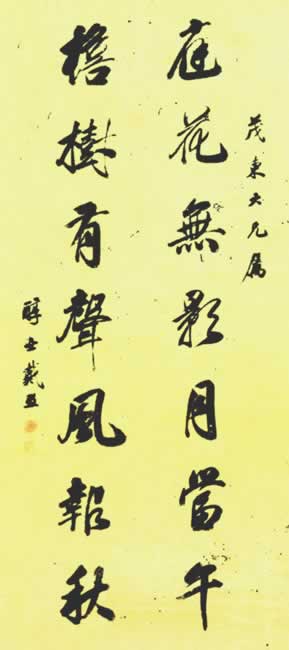 茂東大兄屬
庭花無影月當午
檐樹有聲風報秋
醇士戴熙